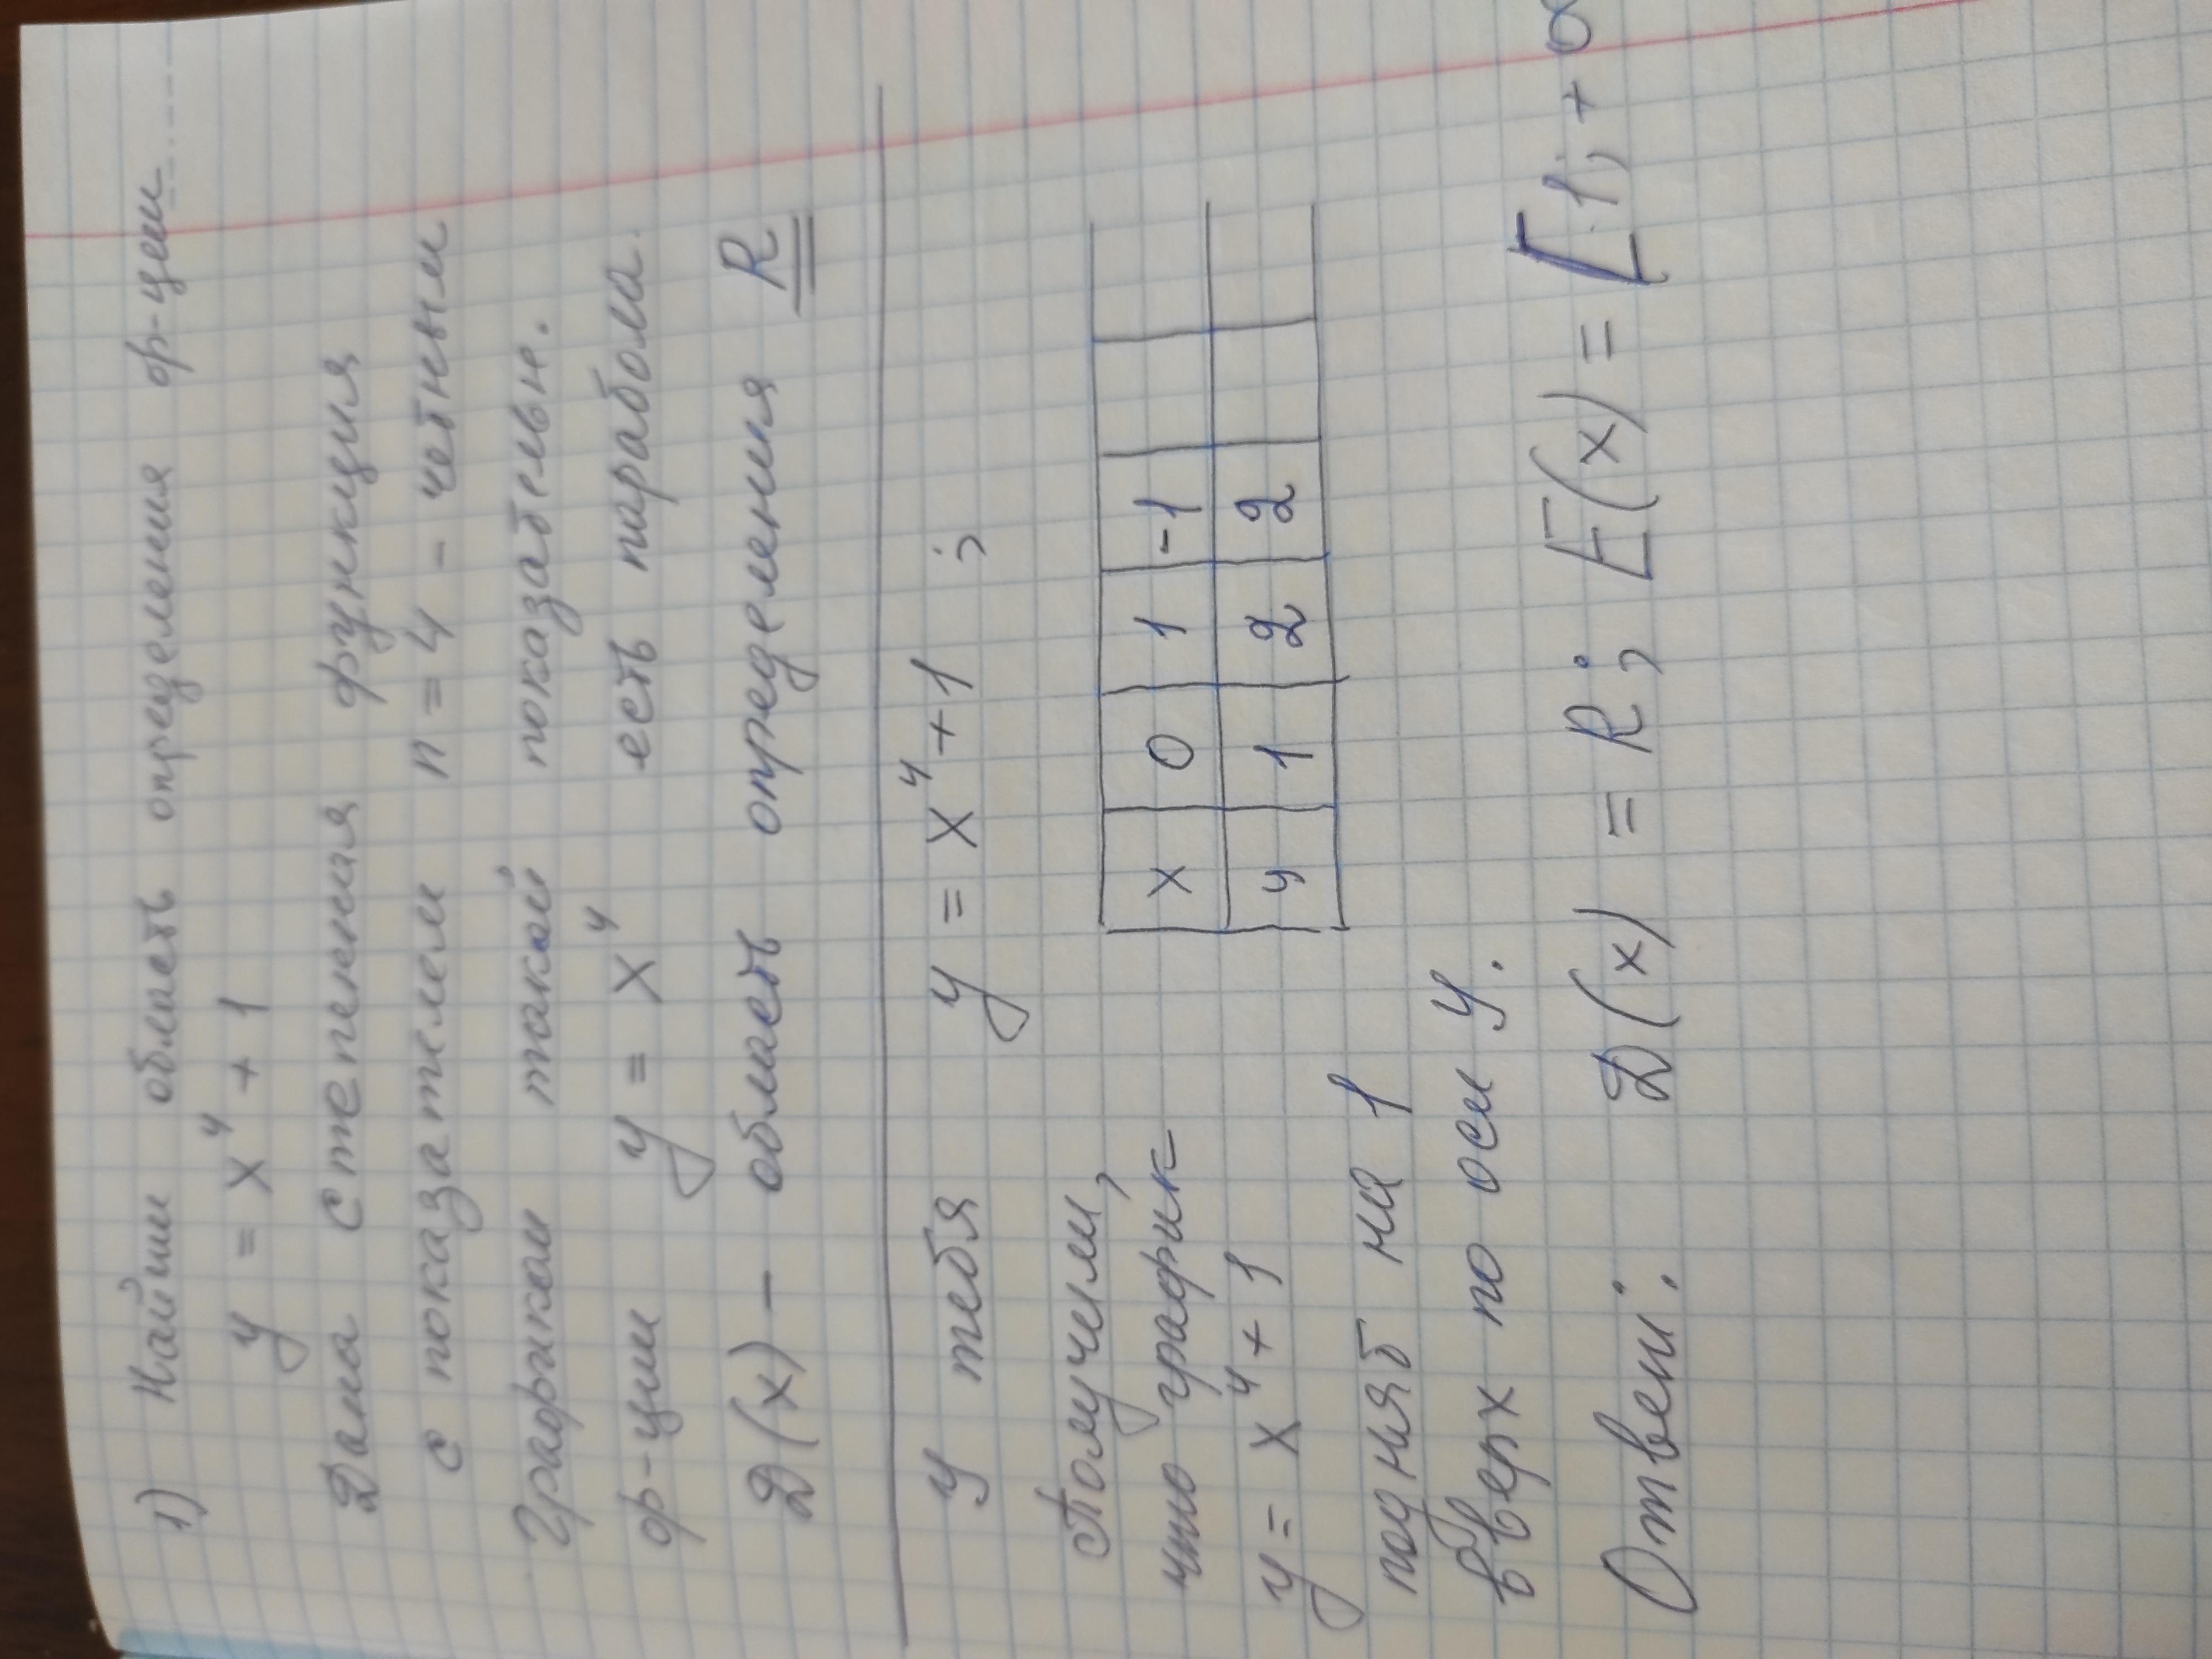 1) Найти область определения ф-ции
y = x⁴ + 1
Дана степенная функция
с показателем n = 4 - четным
Графиком такой показательн.
ф-ции y = x⁴ есть парабола.
D(x) - область определения R
У тебя y = x⁴ + 1 ;
Получим,
x 0 1 -1
что график
y 1 2 2
y = x⁴ + 1
поднят на 1
вверх по оси y.
Ответ: D(x) = R; E(x) = [1; +